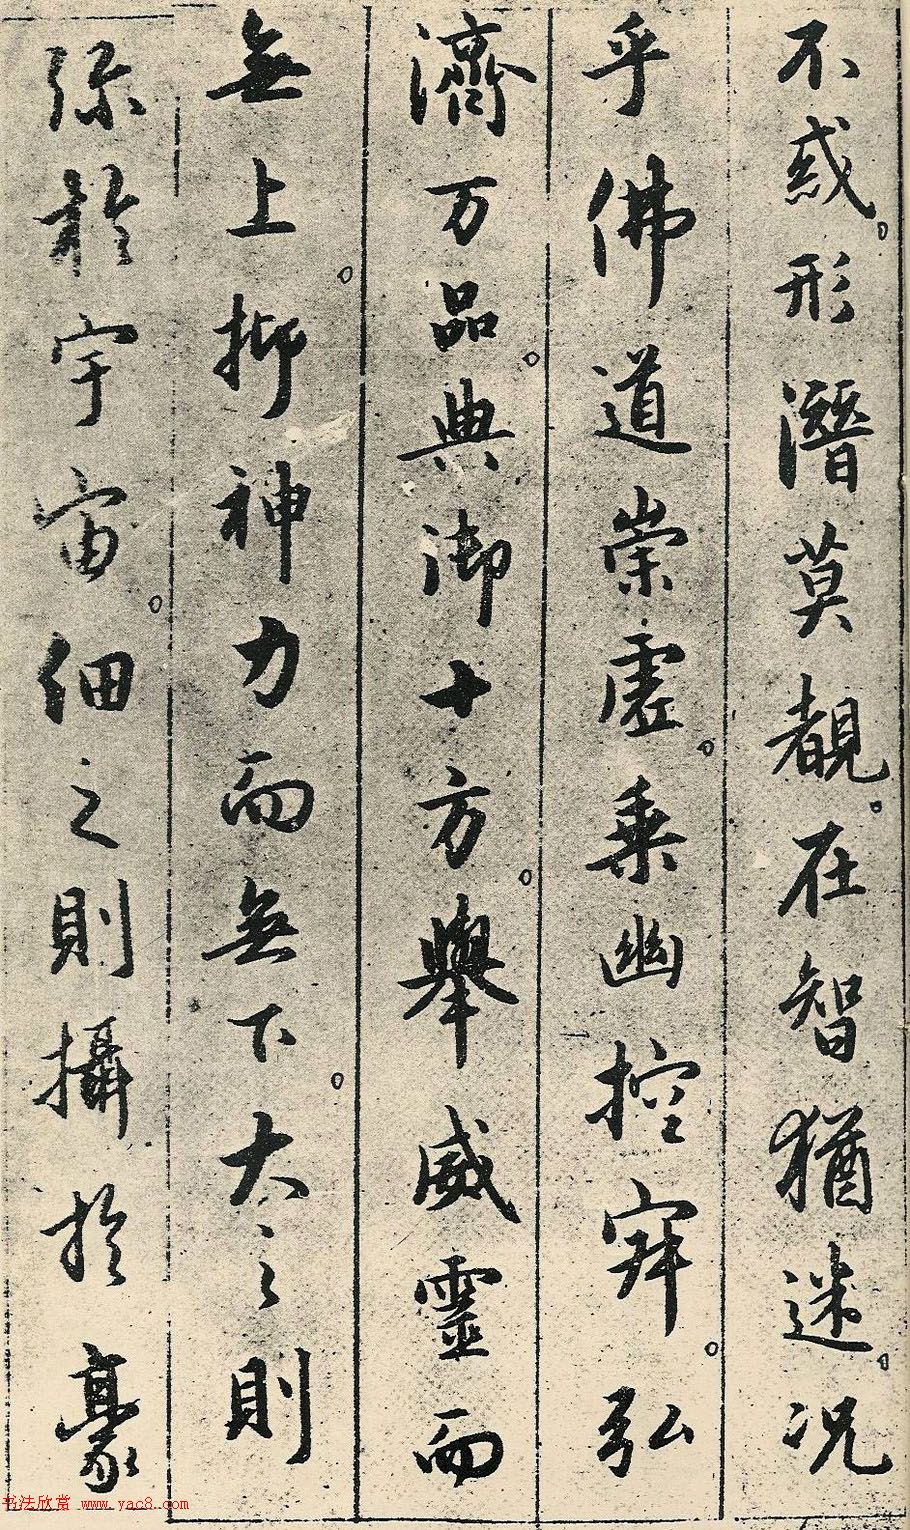 不惑形潛莫覩在智猶迷况
乎佛道崇虛乗幽控寂弘
濟万品典御十方舉威靈而
無上抑神力而無下大之則
彌於宇宙細之則攝於豪
书法欣赏 www.yac8.com